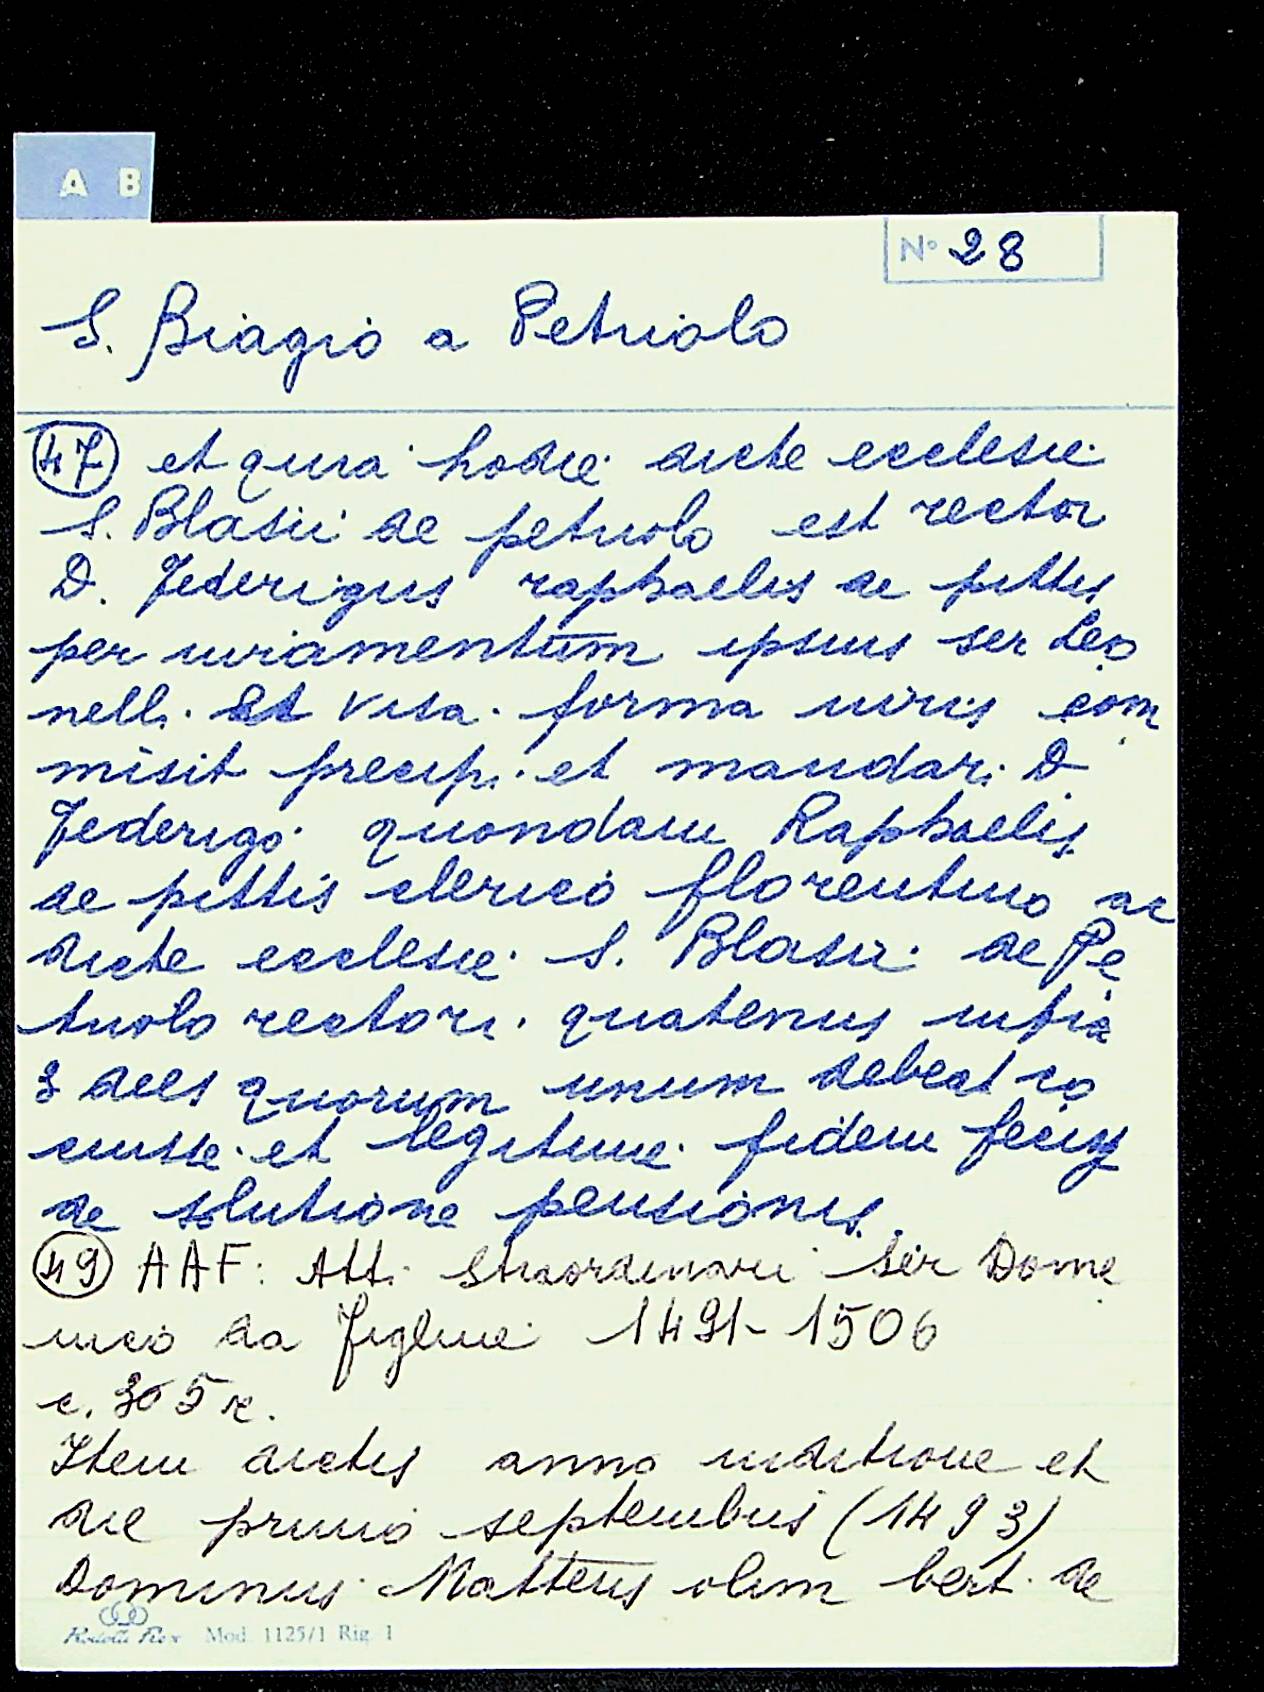 A B
N° 28
S. Biagio a Petriolo
47 et quia hodie dicte ecclesie
S. Blasii de petriolo est rector
D. Federigus raphaelis de pittis
per iuramentum ipsius ser Leo
nelli. et visa forma iuris com
misit precip. et mandar. D.
Federigo quondam Raphaelis
de pittis clerico florentino ac
dicte ecclesie S. Blasii de Pe
triolo rectori quatenus infra
3 dies quorum unum debeat
et legitime fidem
de solutione pensionis
49 AAF: Atti Straordinari Ser Dome
nico da Figline 1491-1506
c. 305 r.
Item dictis anno inditione et
die primo septembris (1493)
Dominus Matteus olim bert. de
Mod. 1125/1 Rig. 1